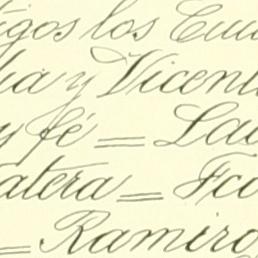 tigos los Ciud
lia y Vicent
y fé = Lau
atera = Fco
= Ramiro